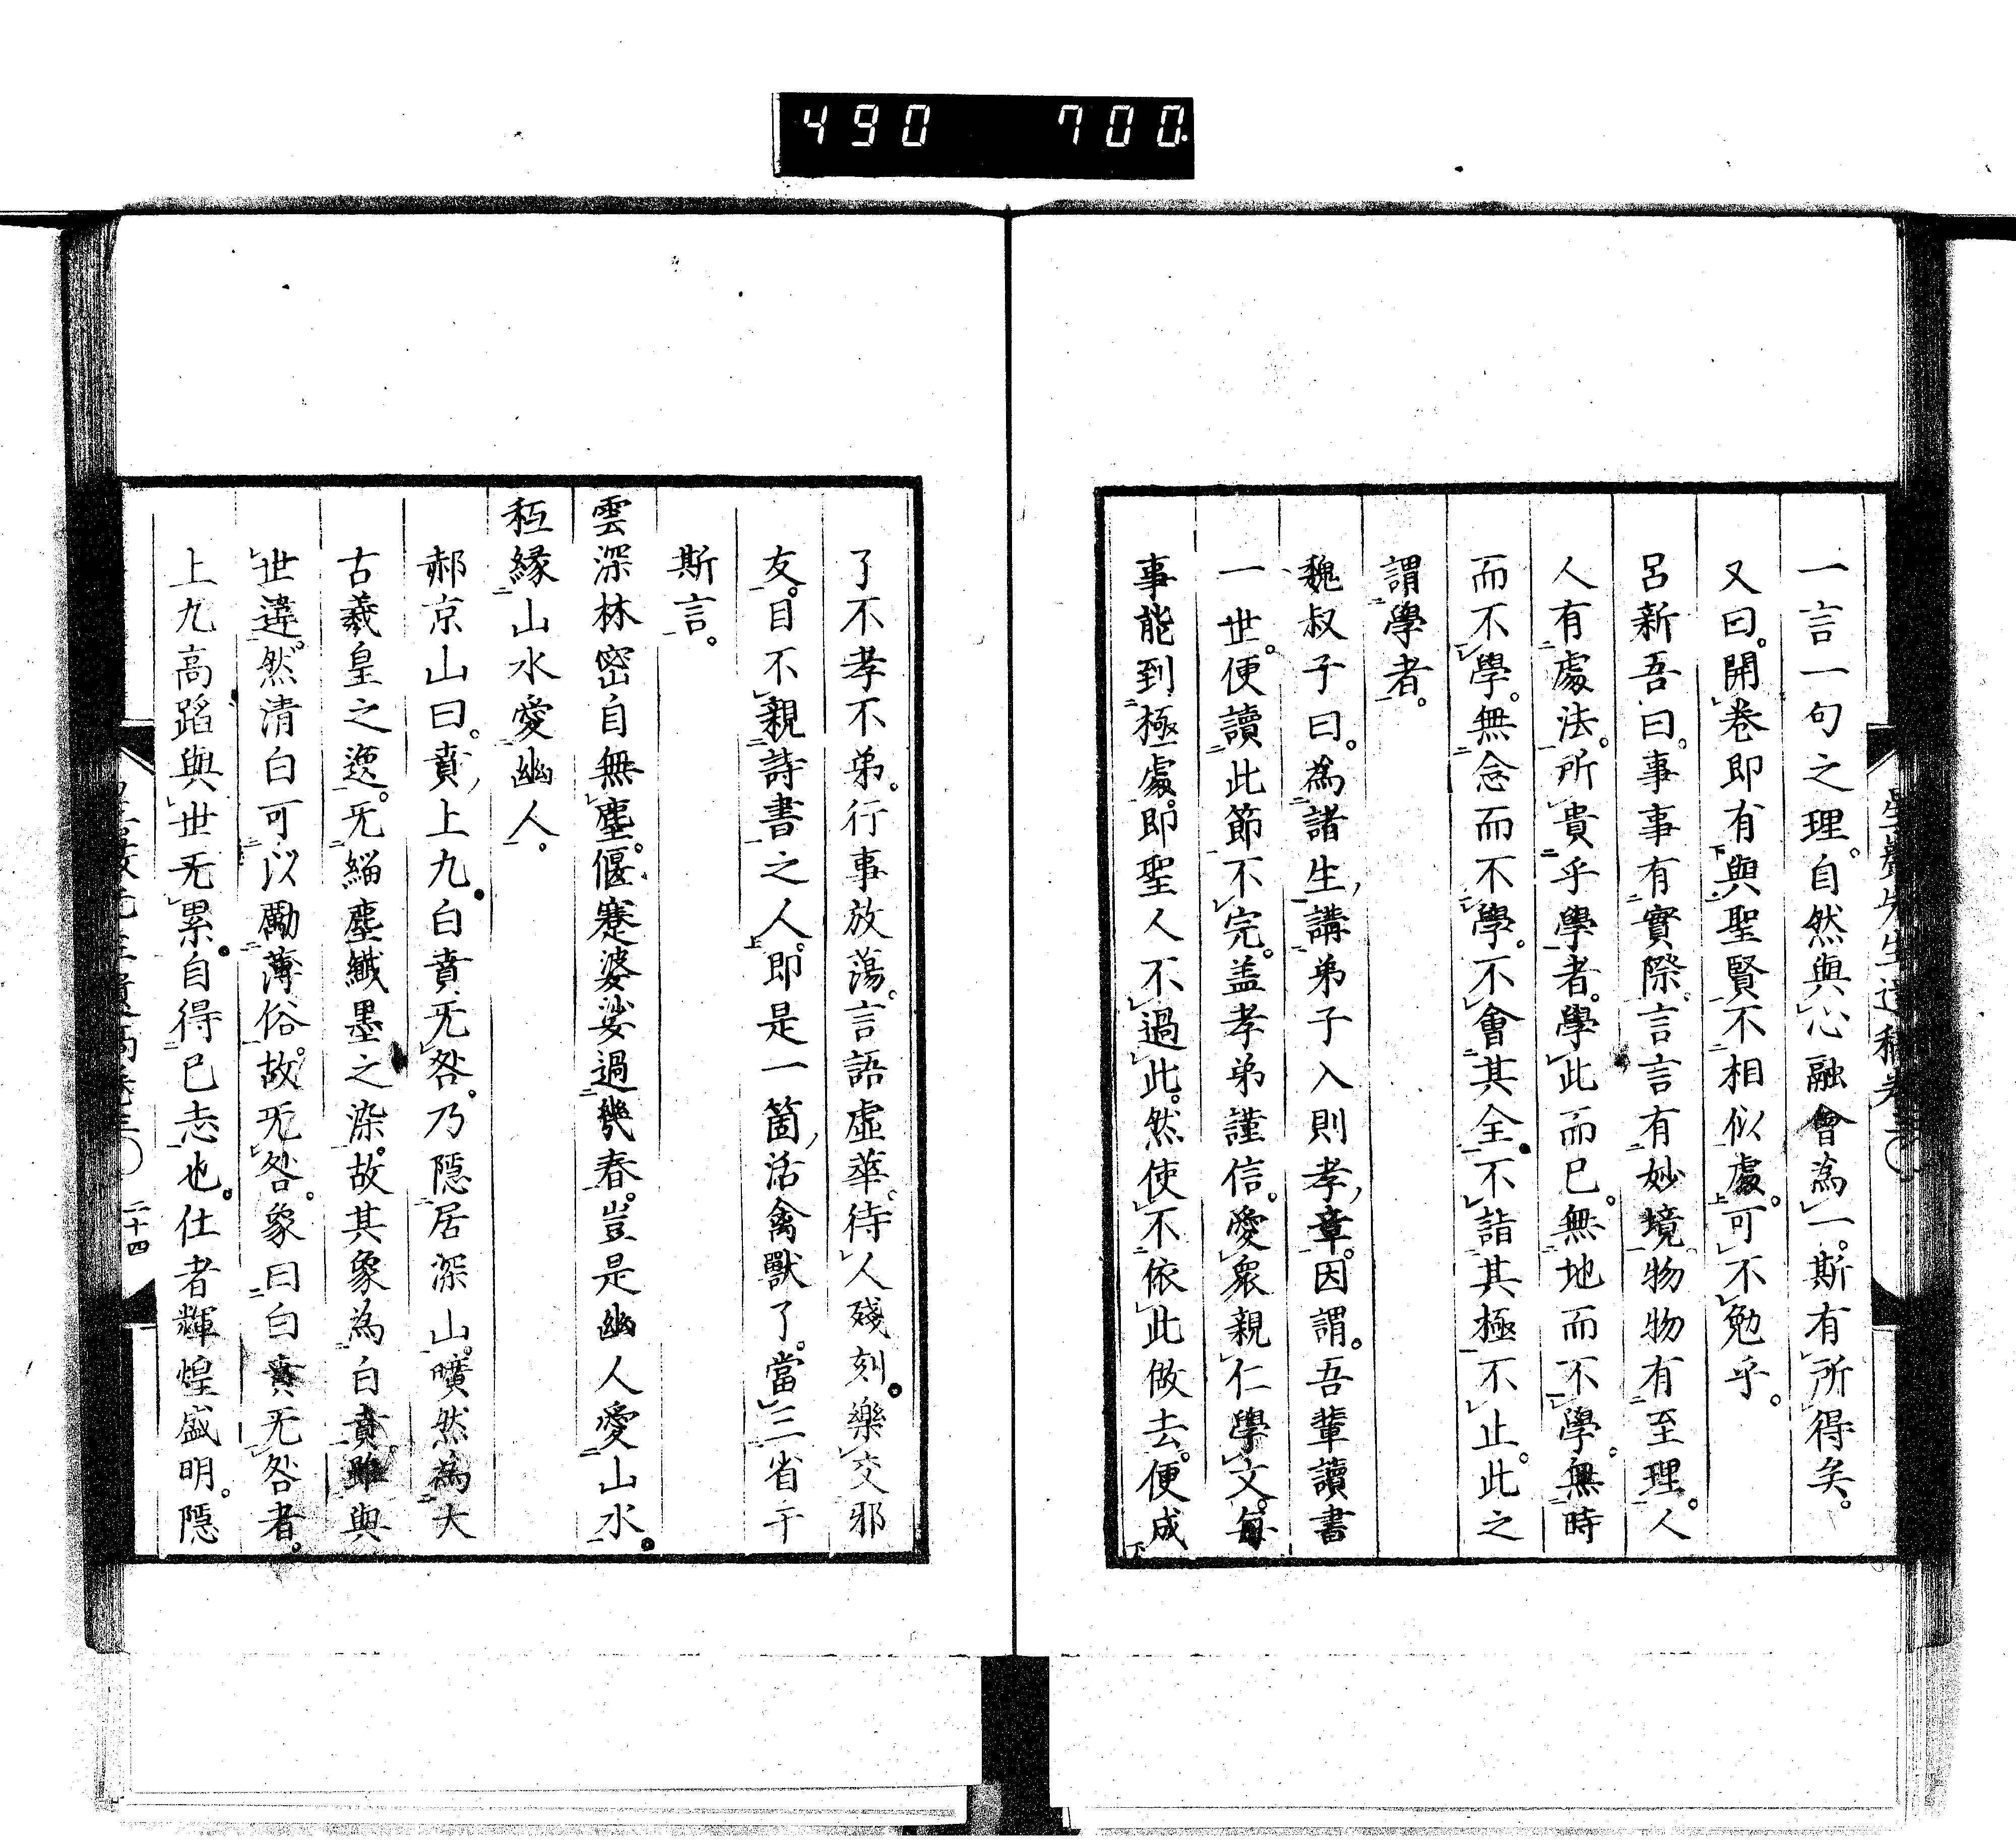 490 700
一言一句之理。自然與心融會為一。斯有所得矣。
又曰。開卷即有與聖賢不相似處。可不勉乎。
呂新吾曰。事事有實際。言言有妙境。物物有至理。人
人有處法。所貴乎學者。學此而已。無地而不學。無時
而不學。無念而不學。不會其全。不詣其極不止。此之
謂學者。
魏叔子曰。為諸生講弟子入則孝章。因謂。吾輩讀書
一世。便讀此節不完。盖孝弟謹信。愛衆親仁學文。每
事能到極處。即聖人不過此。然使不依此做去。便成
了不孝不弟。行事放蕩。言語虛華。待人殘刻。樂交邪
友。目不親詩書之人。即是一箇活禽獸了。當三省于
斯言。
雲深林密自無塵。偃蹇婆娑過幾春。豈是幽人愛山水。
秪縁山水愛幽人。
郝京山曰。賁上九。白賁无咎。乃隱居深山。曠然為大
古羲皇之逸。无緇塵纖墨之染。故其象為白賁。雖與
世違。然清白可以勵薄俗。故无咎。象曰白賁无咎者。
上九高蹈與世无累。自得已志也。仕者輝煌盛明。隱
二十四